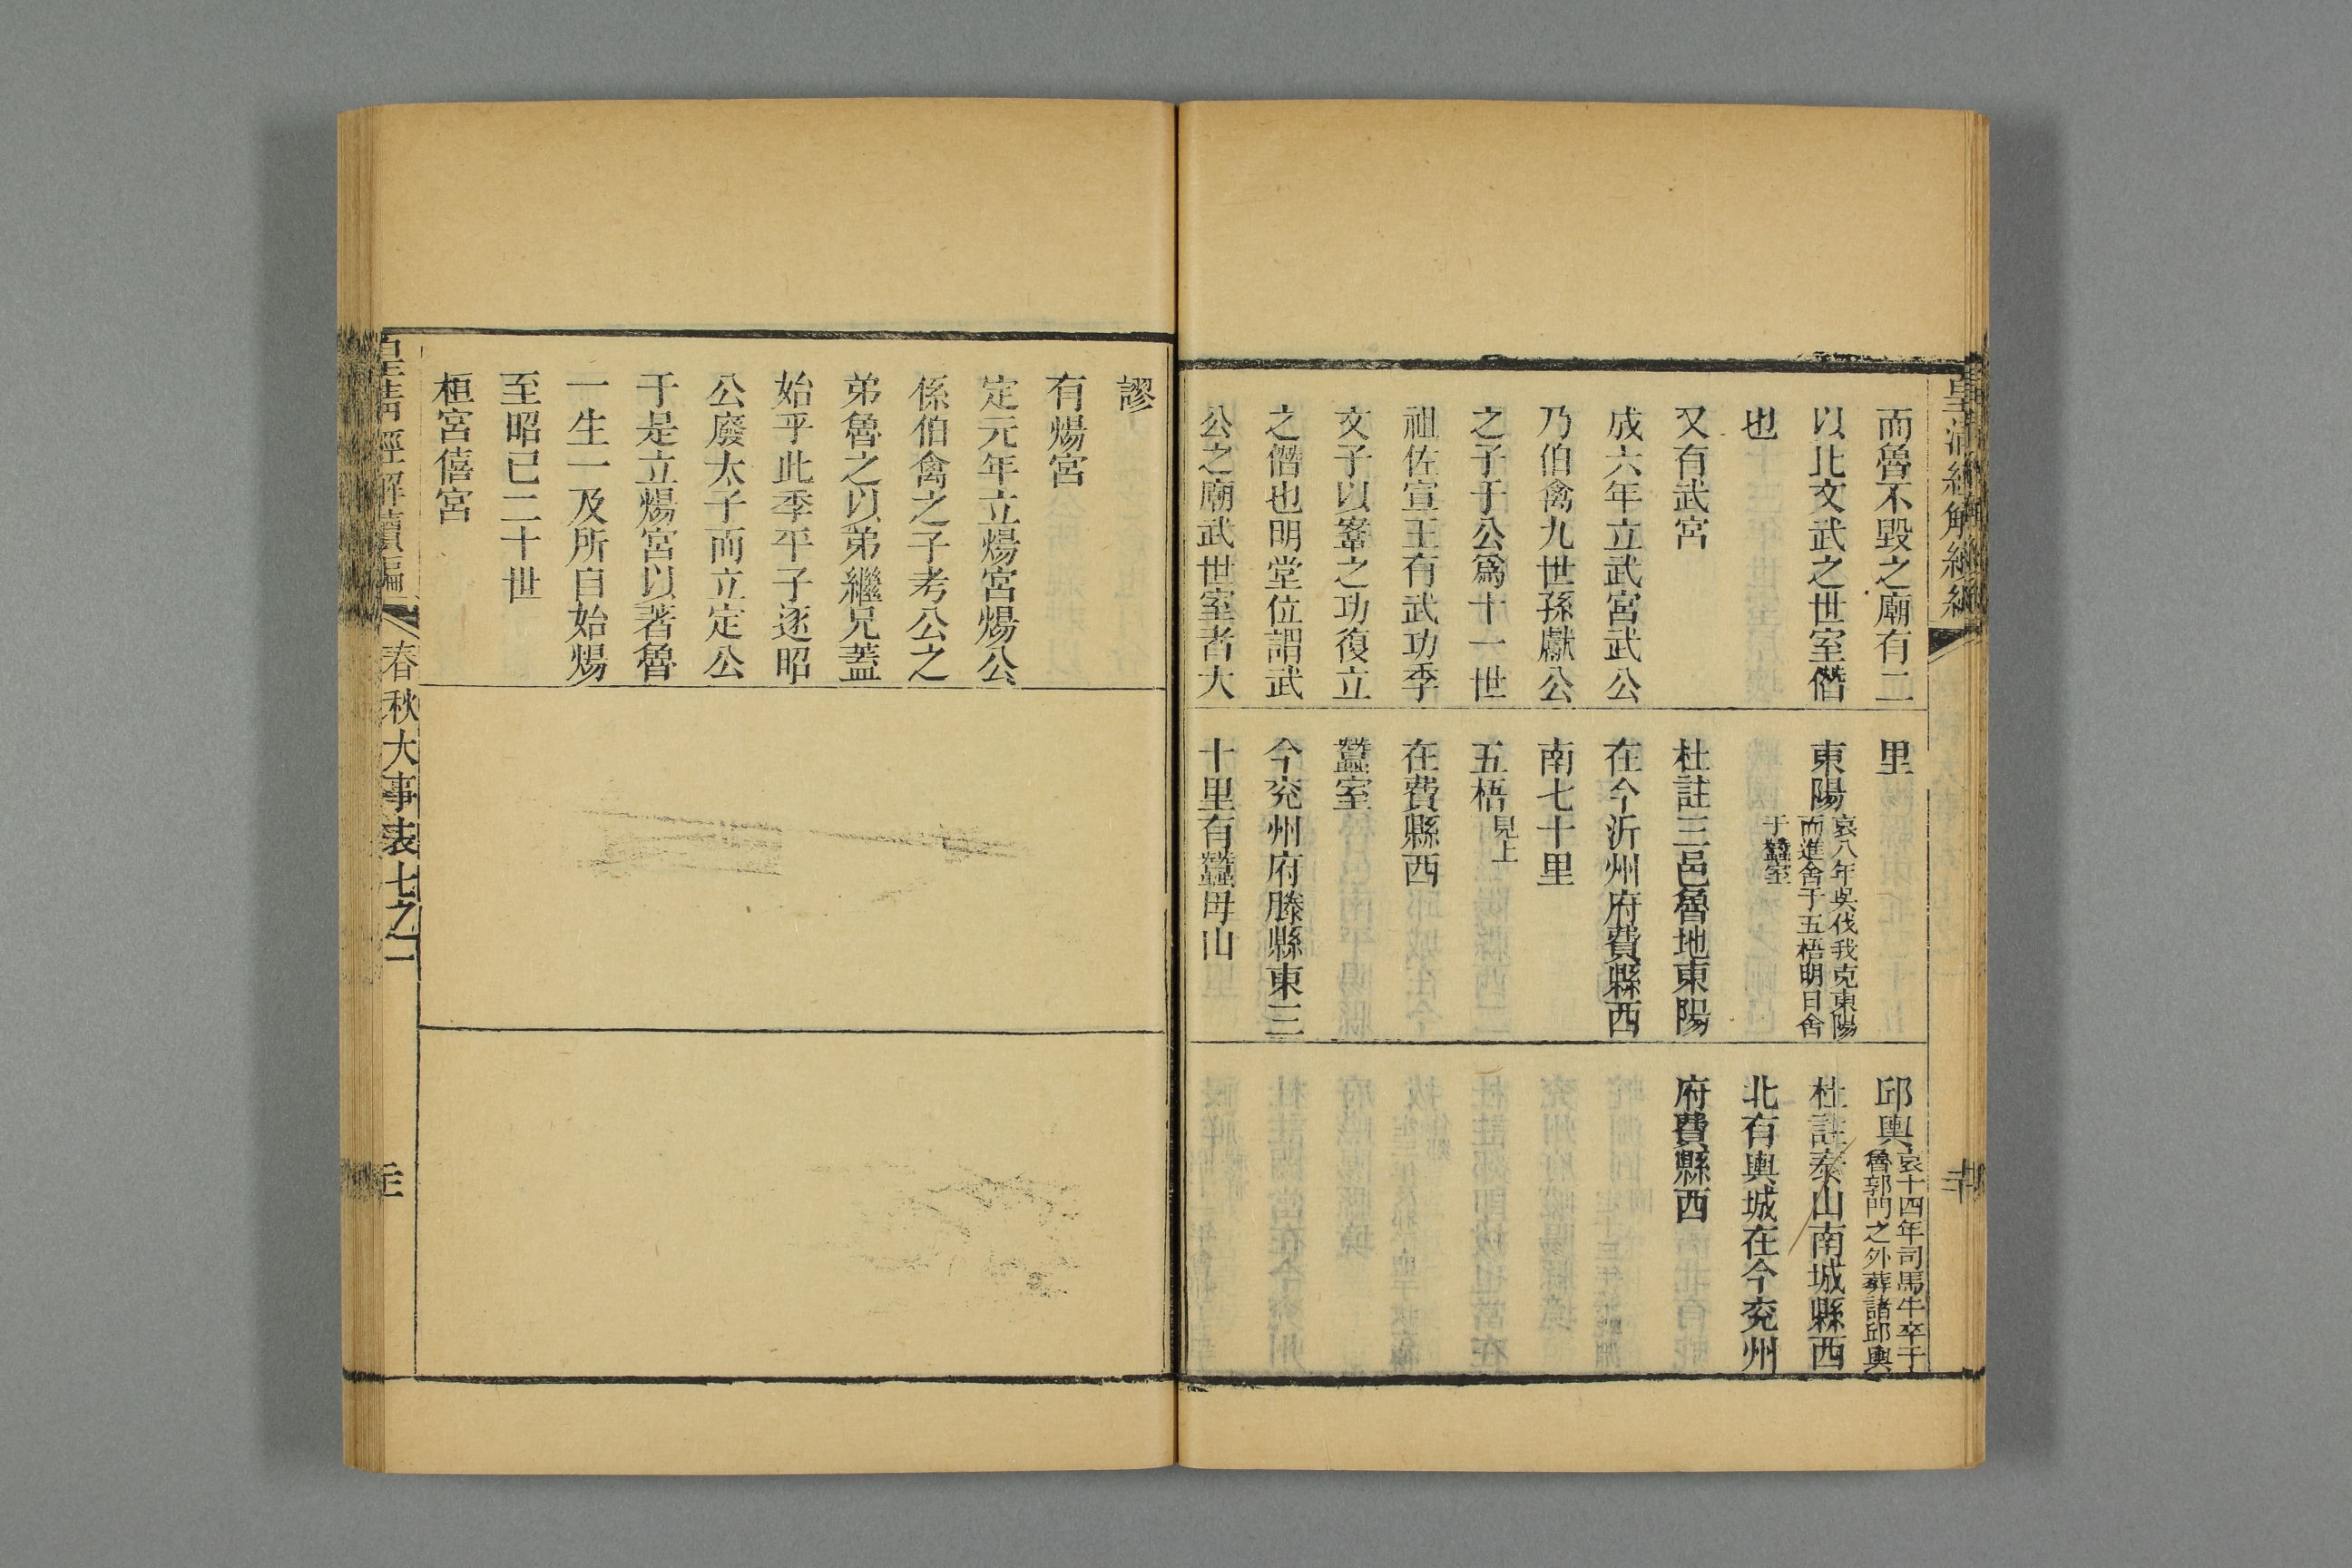 皇清經解續編
而魯不毀之廟有二
以比文武之世室僭
也
又有武宮
成六年立武宮武公
乃伯禽九世孫獻公
之子于公爲十一世
祖佐宣王有武功季
文子以鞌之功復立
之僭也明堂位謂武
公之廟武世室者大
里
東陽哀八年吳伐我克東陽
而進舍于五梧明日舍
于蠶室
杜註三邑魯地東陽
在今沂州府費縣西
南七十里
五梧見上
在費縣西
蠶室
今兖州府滕縣東三
十里有蠶母山
邱輿哀十四年司馬牛卒于
魯郭門之外葬諸邱輿
杜註泰山南城縣西
北有輿城在今兖州
府費縣西
謬
有煬宮
定元年立煬宮煬公
係伯禽之子考公之
弟魯之以弟繼兄蓋
始乎此季平子逐昭
公廢太子而立定公
于是立煬宮以著魯
一生一及所自始煬
至昭已二十世
桓宮僖宮
皇清經解續編 春秋大事表七之一